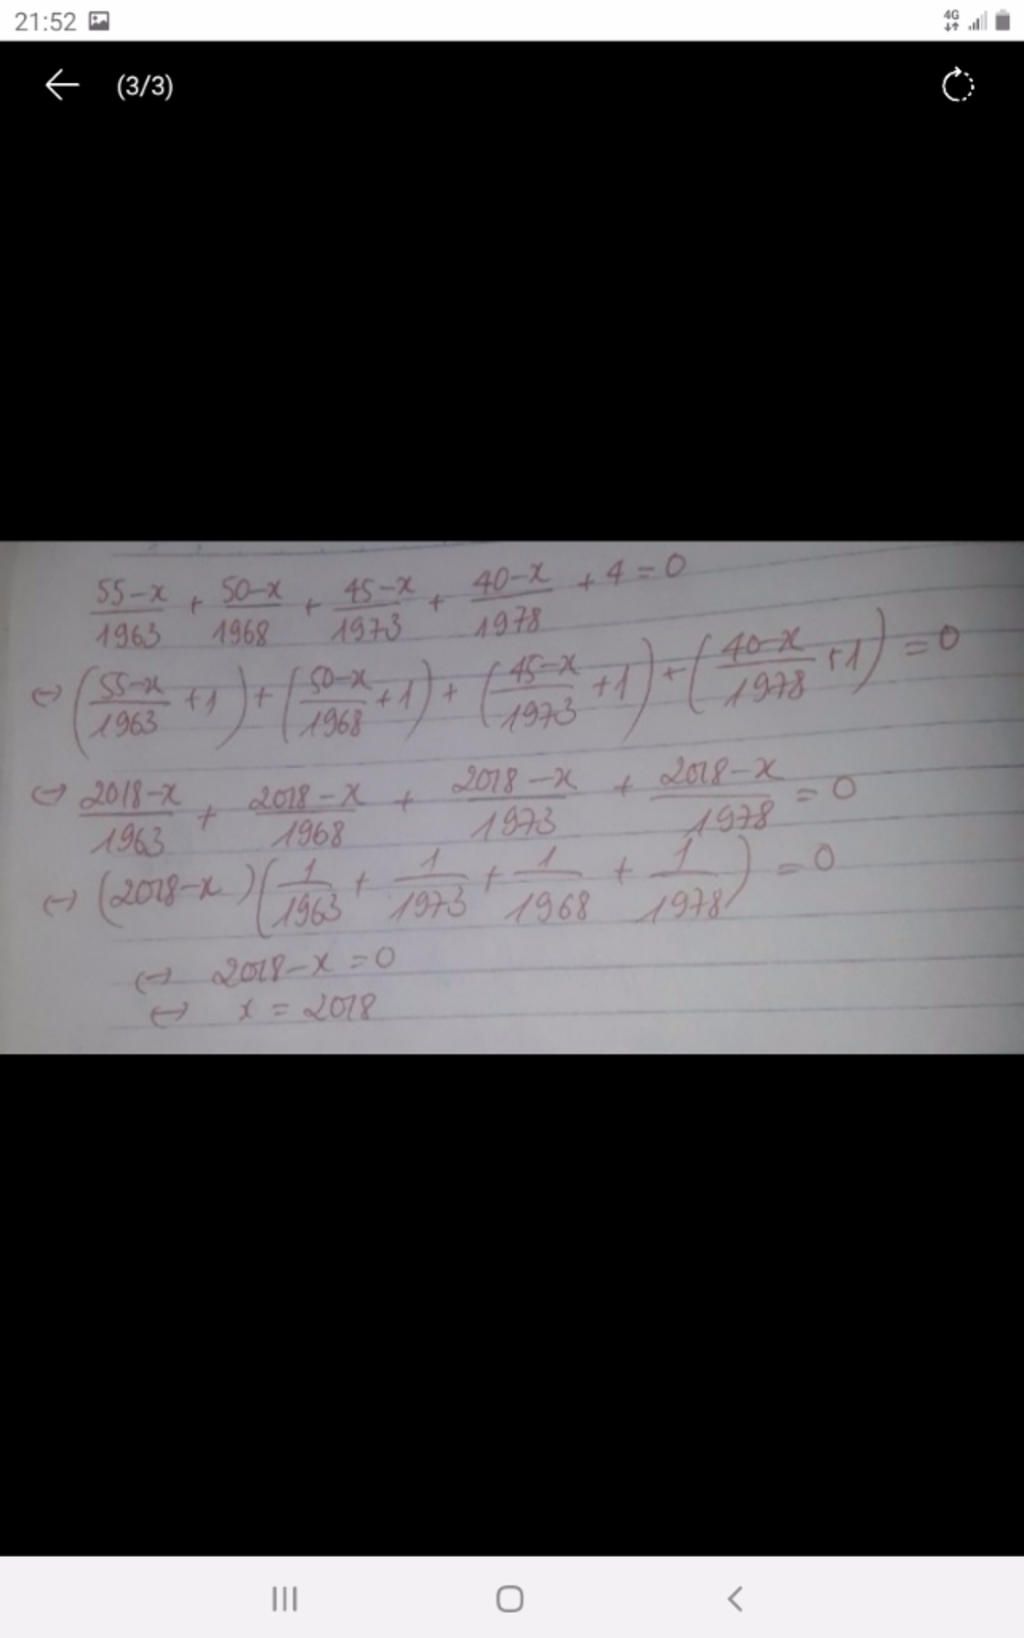 21:52 4G
(3/3)
55-x/1963 + 50-x/1968 + 45-x/1973 + 40-x/1978 + 4 = 0
↔ (55-x/1963 + 1) + (50-x/1968 + 1) + (45-x/1973 + 1) + (40-x/1978 + 1) = 0
↔ 2018-x/1963 + 2018-x/1968 + 2018-x/1973 + 2018-x/1978 = 0
↔ (2018-x)(1/1963 + 1/1973 + 1/1968 + 1/1978) = 0
↔ 2018-x = 0
↔ x = 2018